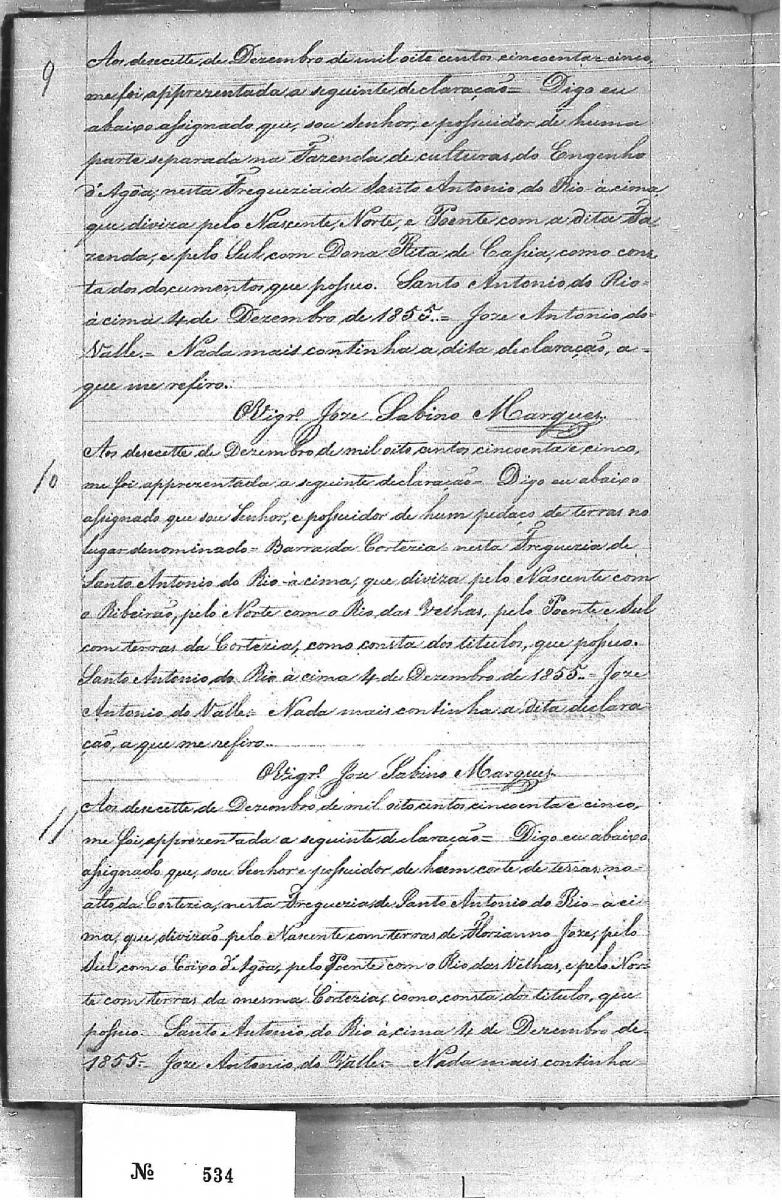 9
Aos desecette de Dezembro de mil oito centos cincoenta e cinco,
me foi apprezentada a seguinte declaração = Digo eu
abaixo assignado que, sou senhor, e possuidor de huma
parte separada na Fazenda de culturas do Engenho
d'Agôa, nesta Freguezia de Santo Antonio do Rio à cima,
que diviza pelo Nascente, Norte, e Poente com a dita Fa-
zenda, e pelo Sul com Dona Rita de Cassia, como cons-
ta dos documentos, que possuo. Santo Antonio do Rio-
à cima 4 de Dezembro de 1855. = Joze Antonio do
Valle. = Nada mais continha a dita declaração, a-
que me refiro.
O Vigrº Joze Sabino Marques
10
Aos desecette de Dezembro de mil oito centos cincoenta e cinco,
me foi apprezentada a seguinte declaração = Digo eu abaixo
assignado que sou Senhor, e possuidor de hum pedaço de terras no
lugar denominado = Barra da Cortezia nesta Freguezia de
Santo Antonio do Rio-à cima, que diviza pelo Nascente com
o Ribeirão, pelo Norte com o Rio das Velhas, pelo Poente e Sul
com terras da Cortezia, como consta dos titulos, que possuo.
Santo Antonio do Rio à cima 4 de Dezembro de 1855. = Joze
Antonio do Valle. = Nada mais continha a dita declara-
ção, a que me refiro.
O Vigrº Joze Sabino Marques
11
Aos desecette de Dezembro de mil oito centos cincoenta e cinco,
me foi apprezentada a seguinte declaração = Digo eu abaixo
assignado que, sou Senhor e possuidor de hum corte de terras no
alto da Cortezia, nesta Freguezia de Santo Antonio do Rio-à ci-
ma, que divizão pelo Nascente com terras de Florianno Joze, pelo
Sul com o Coixo d'Agôa, pelo Poente com o Rio das Velhas, e pelo Nor-
te com terras da mesma Cortezia, como consta dos titulos, que
possuo. Santo Antonio do Rio à cima 4 de Dezembro de
1855. = Joze Antonio do Valle. = Nada mais continha
Nº 534